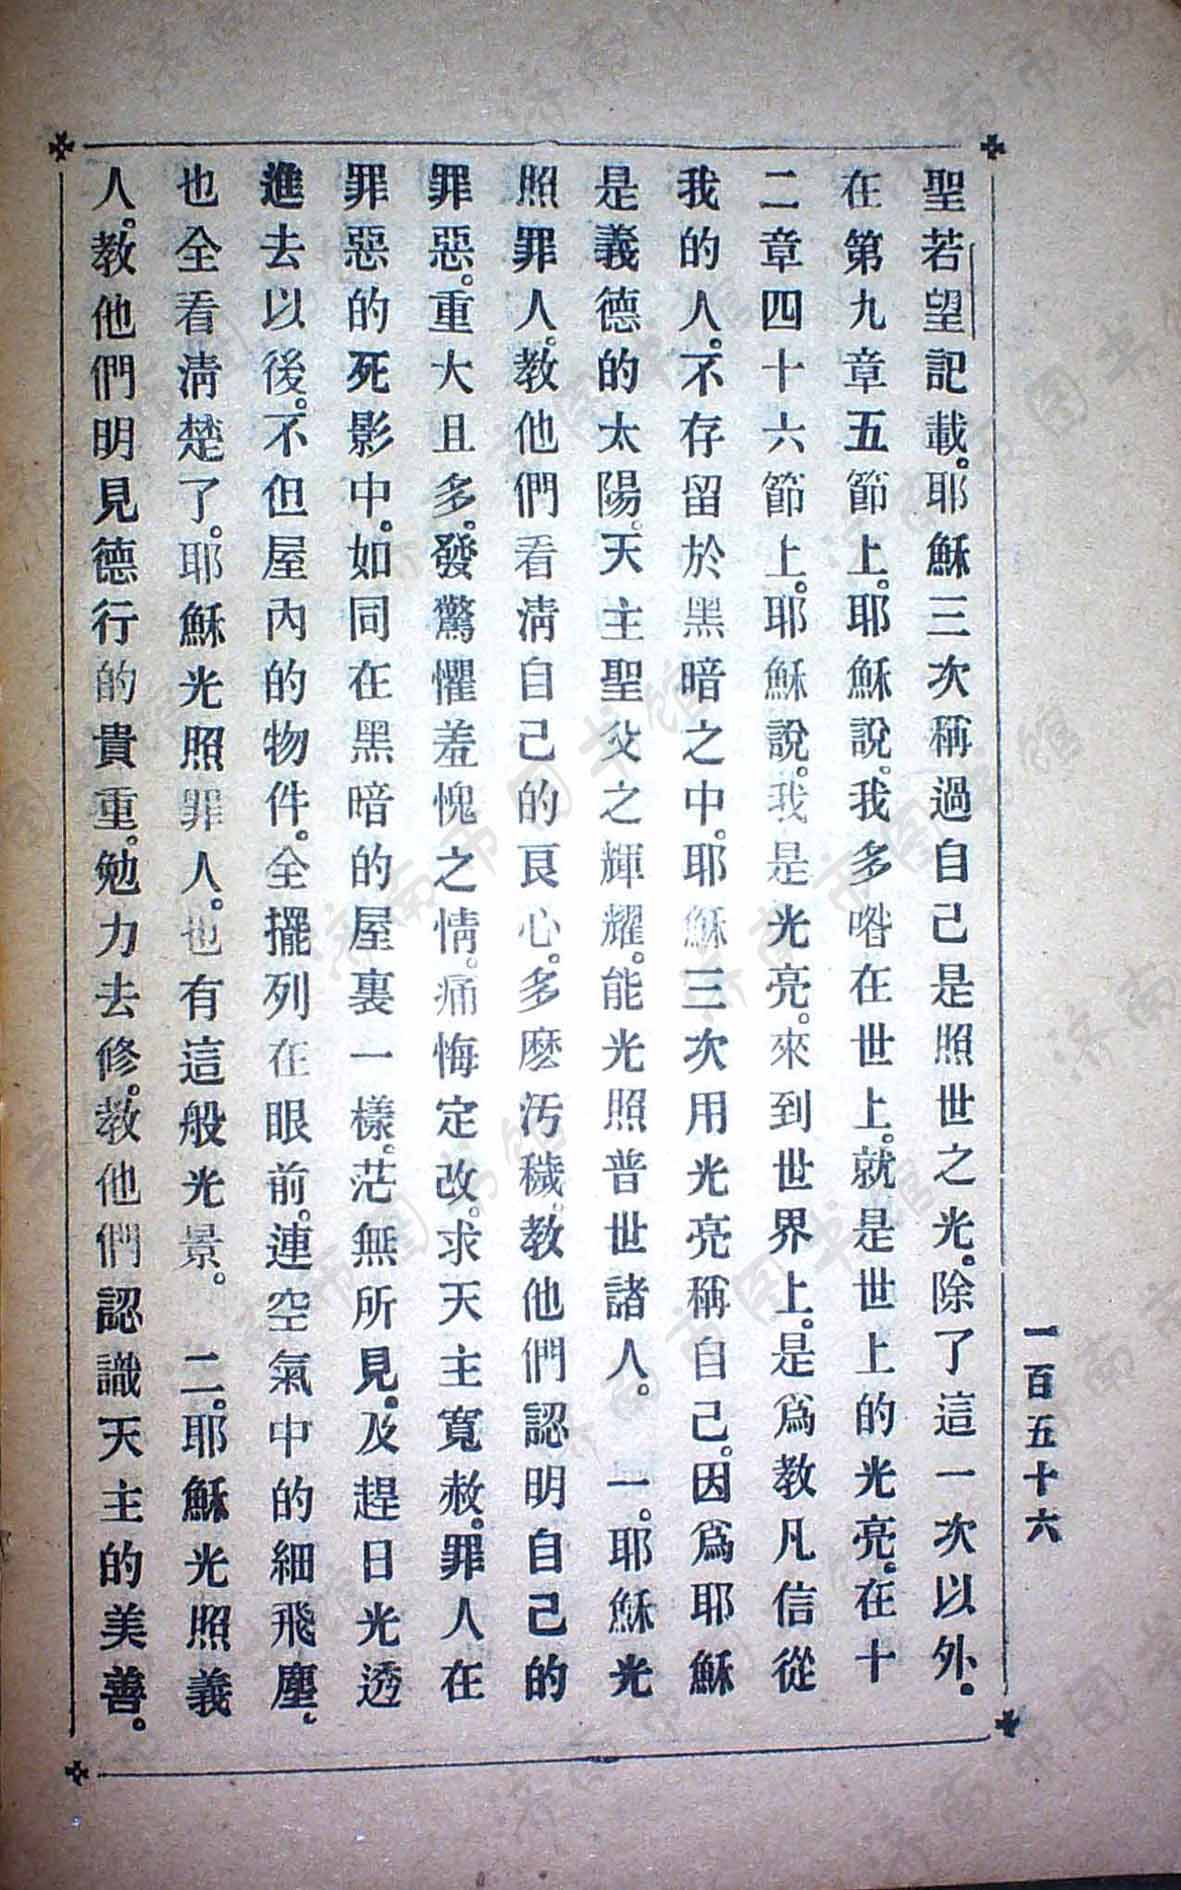 一百五十六
聖若望記載。耶穌三次稱過自己是照世之光。除了這一次以外。
在第九章五節上。耶穌說。我多喒在世上。就是世上的光亮。在十
二章四十六節上。耶穌說。我是光亮。來到世界上。是爲教凡信從
我的人。不存留於黑暗之中。耶穌三次用光亮稱自己。因爲耶穌
是義德的太陽。天主聖父之輝耀。能光照普世諸人。 一。耶穌光
照罪人。教他們看淸自己的良心。多麽汚穢。教他們認明自己的
罪惡。重大且多。發驚懼羞愧之情。痛悔定改。求天主寬赦。罪人在
罪惡的死影中。如同在黑暗的屋裏一樣。茫無所見。及趕日光透
進去以後。不但屋內的物件。全擺列在眼前。連空氣中的細飛塵、
也全看淸楚了。耶穌光照罪人。也有這般光景。 二。耶穌光照義
人。教他們明見德行的貴重。勉力去修。教他們認識天主的美善。
济南市图书馆